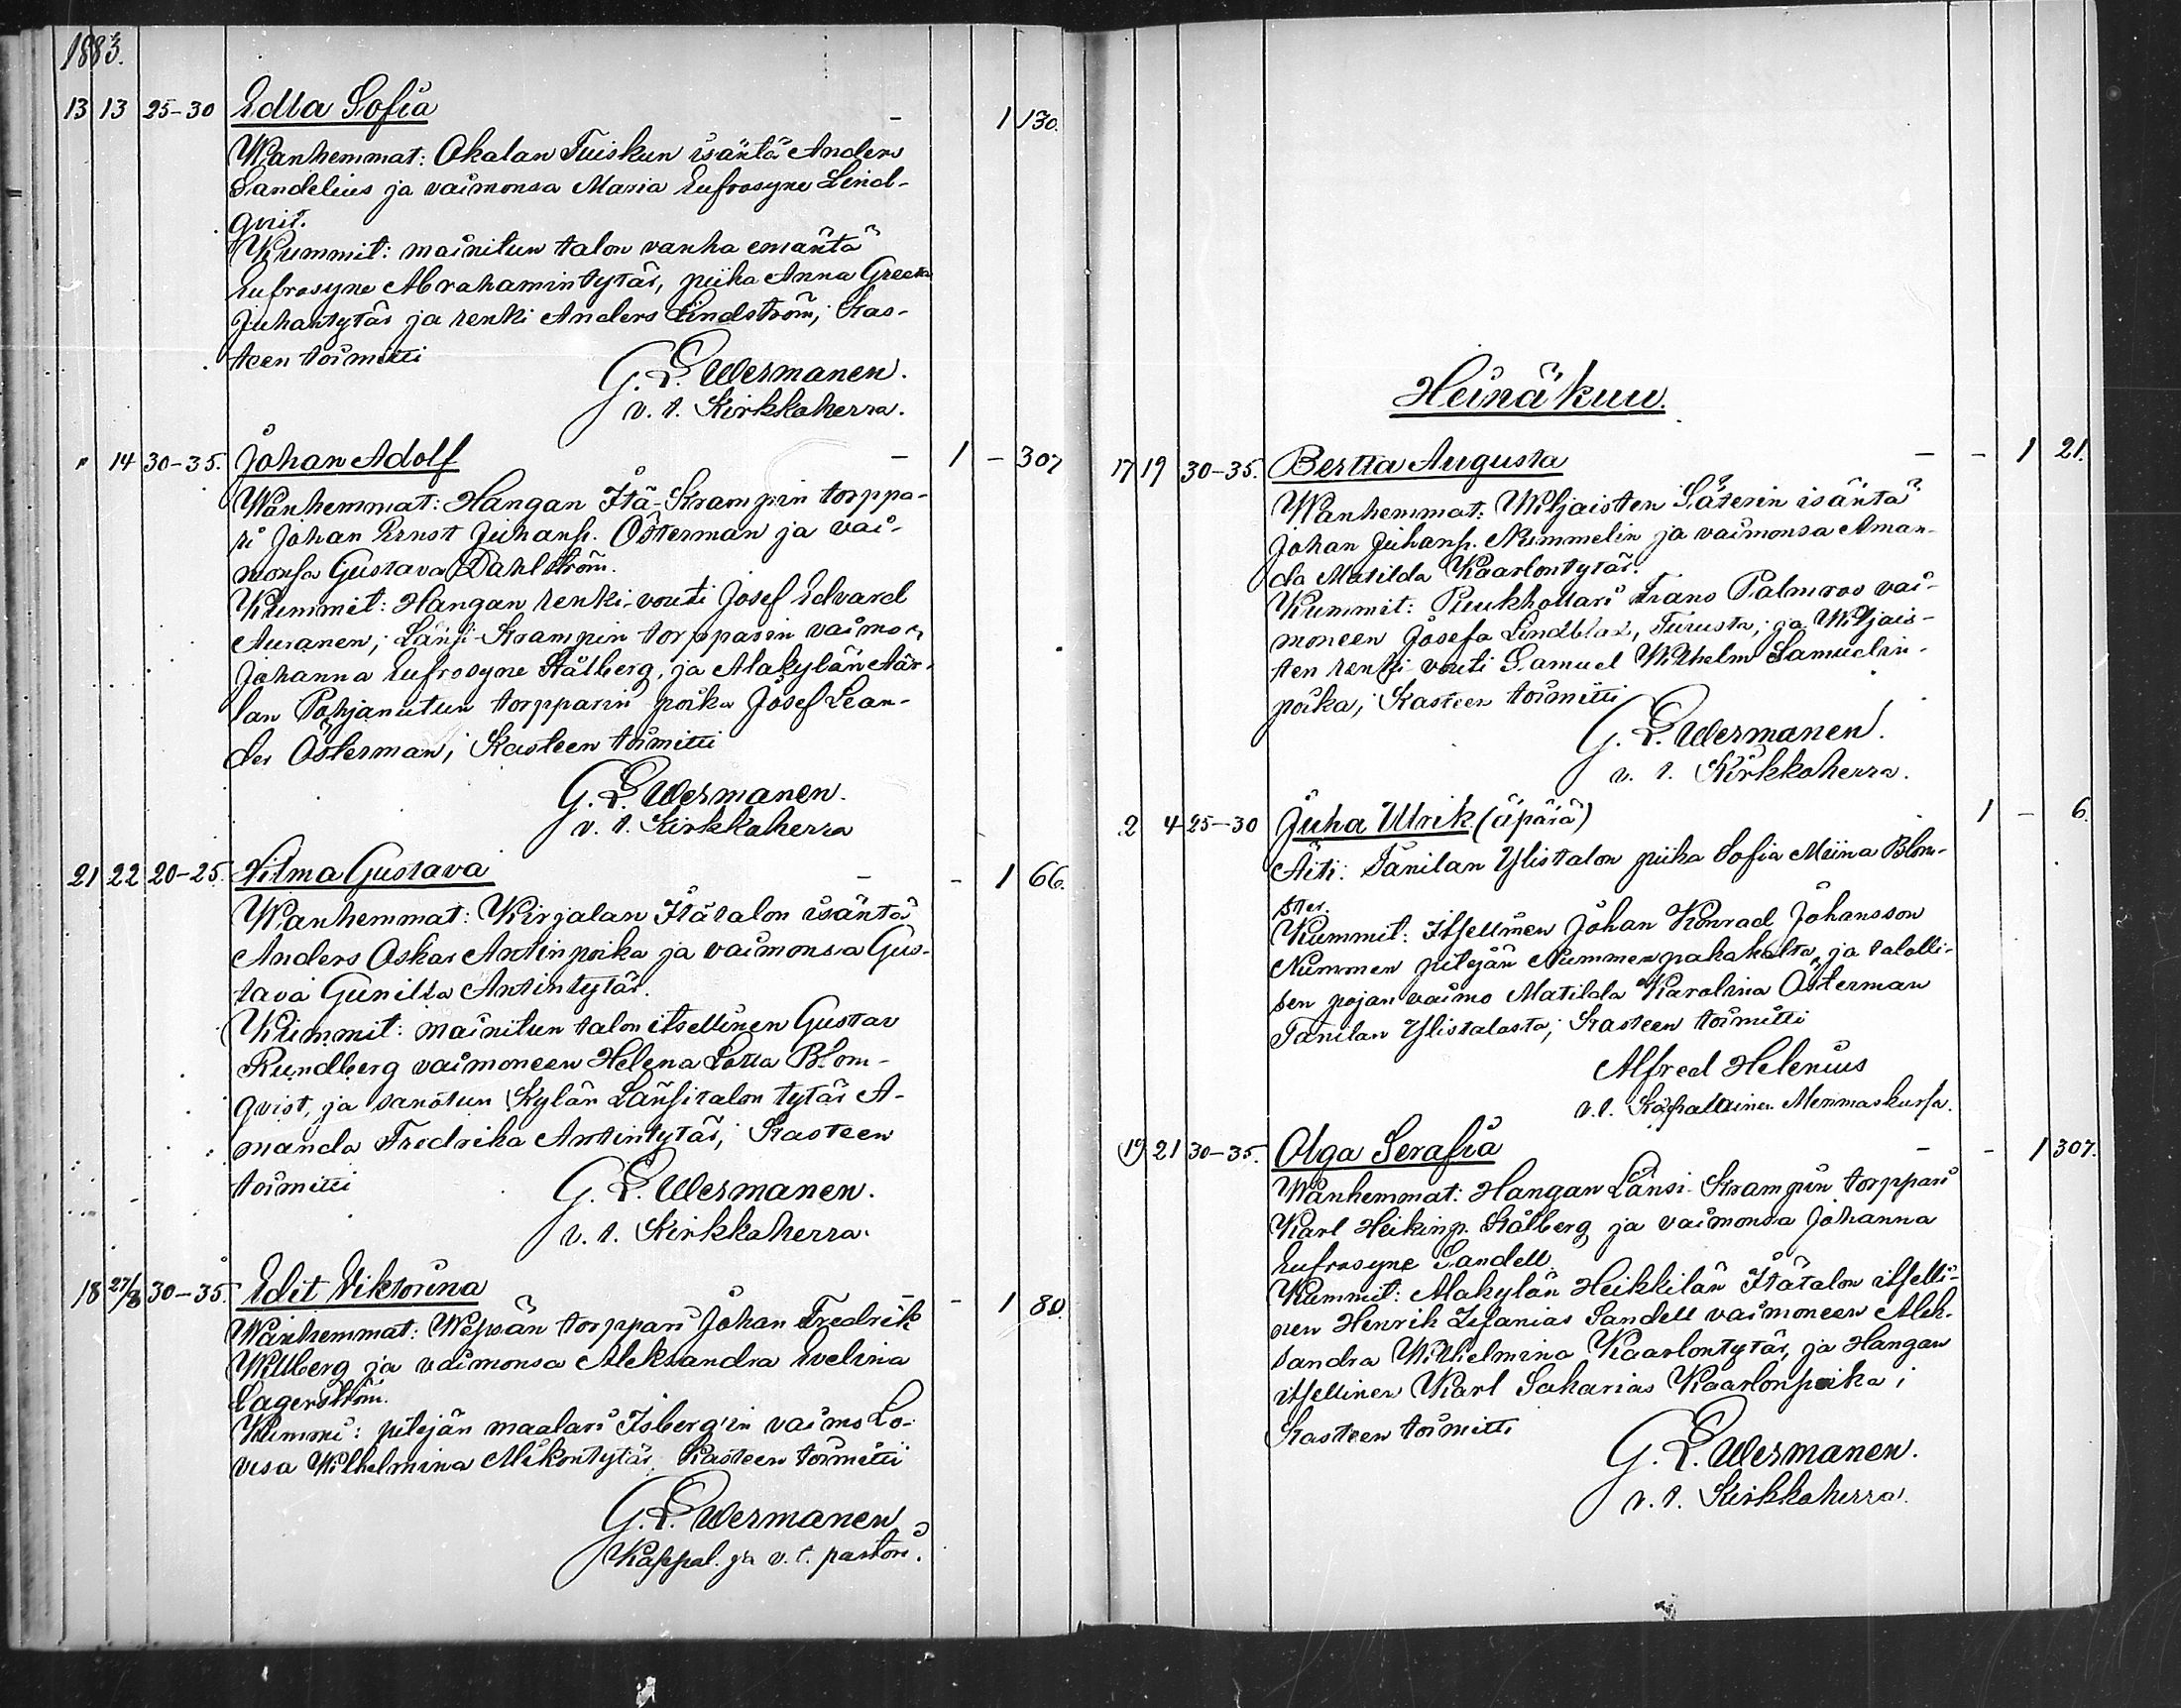 1883.
13 13 25-30 Edla Sofia - 1 130.
Wanhemmat: Okalan Tuiskun isäntä Anders
Sandelius ja vaimonsa Maria Eufrosyne Lind-
qvist.
Kummit: mainitun talon vanha emäntä
Eufrosyne Abrahamintytär, piika Anna Greeta
Juhantytär ja renki Anders Lindström; Kas-
teen toimitti
G. L. Wermanen.
v. t. Kirkkoherra.
" 14 30-35. Johan Adolf - 1 - 307
Wanhemmat: Hangan Itä-Krampin torppa-
ri Johan Ernst Juhanp. Österman ja vai-
monsa Gustava Dahlström.
Kummit: Hangan renki-vouti Josef Edvard
Auranen; Länsi-Krampin torpparin vaimo
Johanna Eufrosyne Stålberg, ja Alakylän Aär-
lan Pohjanutun torpparin poika Josef Lean-
der Österman; Kasteen toimitti
G. L. Wermanen.
v. t. Kirkkoherra
21 22 20-25. Hilma Gustava - - 1 66.
Wanhemmat: Kirjalan Itätalon isäntä
Anders Oskar Antinpoika ja vaimonsa Gus-
tava Gunilla Antintytär.
Kummit: mainitun talon itsellinen Gustav
Rundberg vaimoneen Helena Lovisa Blom-
qvist, ja sanotun Kylän Länsitalon tytär A-
manda Fredrika Antintytär; Kasteen
toimitti
G. L. Wermanen.
v. t. Kirkkoherra.
18 27/8 30-35. Edit Viktorina - - 1 80.
Wanhemmat: Wepsän torppari Johan Fredrik
Willberg ja vaimonsa Aleksandra Evelina
Lagerström.
Kummi: pitäjän maalari Isberg'in vaimo Lo-
visa Wilhelmina Mikontytär; Kasteen toimitti
G. L. Wermanen
Kappal. ja v. t. pastori.
Heinäkuu.
17 19 30-35. Bertta Augusta - - 1 21.
Wanhemmat: Wiljaisten Säterin isäntä
Johan Juhanp. Nummelin ja vaimonsa Aman-
da Matilda Kaarlontytär.
Kummit: Puukhollari Frans Palmroos vai-
moneen Josefa Lindblad, Turusta; ja Wiljais-
ten renki vouti Samuel Wilhelm Samuelin-
poika; Kasteen toimitti
G. L. Wermanen.
v. t. Kirkkoherra.
2 4 25-30 Juha Ulrik (äpärä) 1 - 6.
Äiti: Tanilan Ylistalon piika Sofia Miina Blom-
ster.
Kummit: Itsellinen Johan Konrad Johansson
Nummen pitäjän Nummenpakakalta, ja talolli-
sen pojan vaimo Matilda Karolina Österman
Tanilan Ylistalosta; Kasteen toimitti
Alfred Helenius
v. t. Kappallainen Merimaskussa.
19 21 30-35. Olga Serafia - - 1 307.
Wanhemmat: Hangan Länsi-Krampin torppari
Karl Heikinp. Stålberg ja vaimonsa Johanna
Eufrosyne Sandell.
Kummit: Alakylän Heikkilän Itätalon itselli-
nen Henrik Zefanias Sandell vaimoneen Alek-
sandra Wilhelmina Kaarlontytär, ja Hangan
itsellinen Karl Sakarias Kaarlonpoika;
Kasteen toimitti
G. L. Wermanen.
v. t. Kirkkoherra.